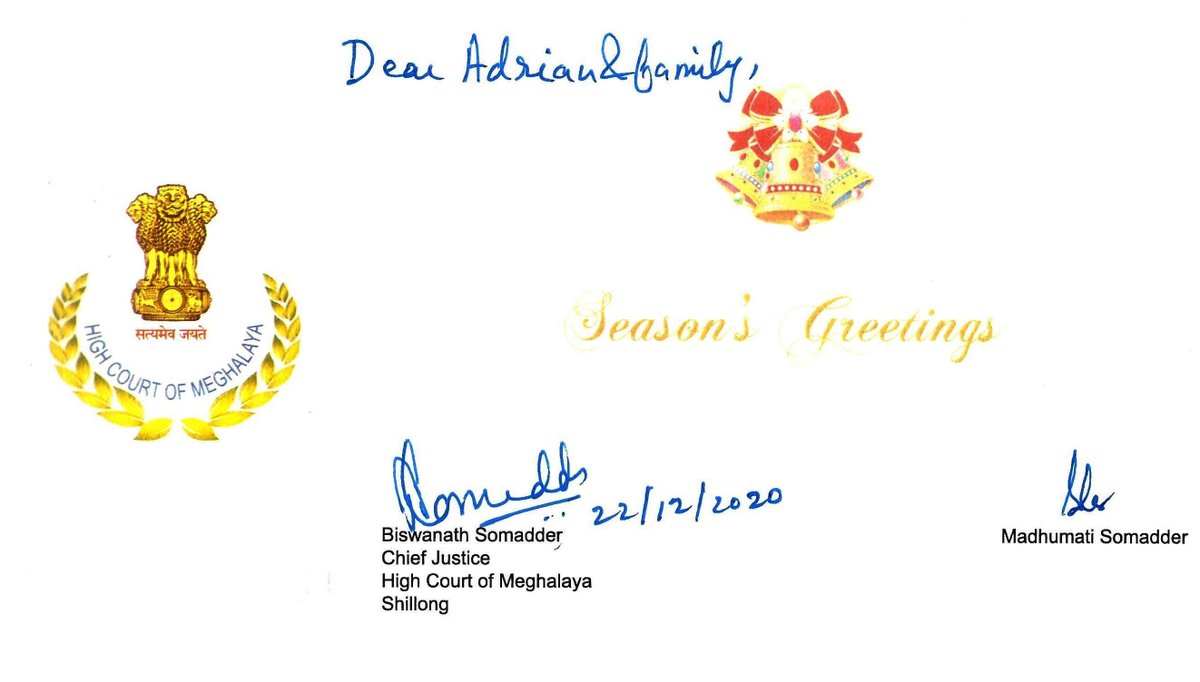 Dear Adrian & family,
सत्यमेव जयते
HIGH COURT OF MEGHALAYA
Season's Greetings
22/12/2020
Biswanath Somadder
Chief Justice
High Court of Meghalaya
Shillong
Madhumati Somadder